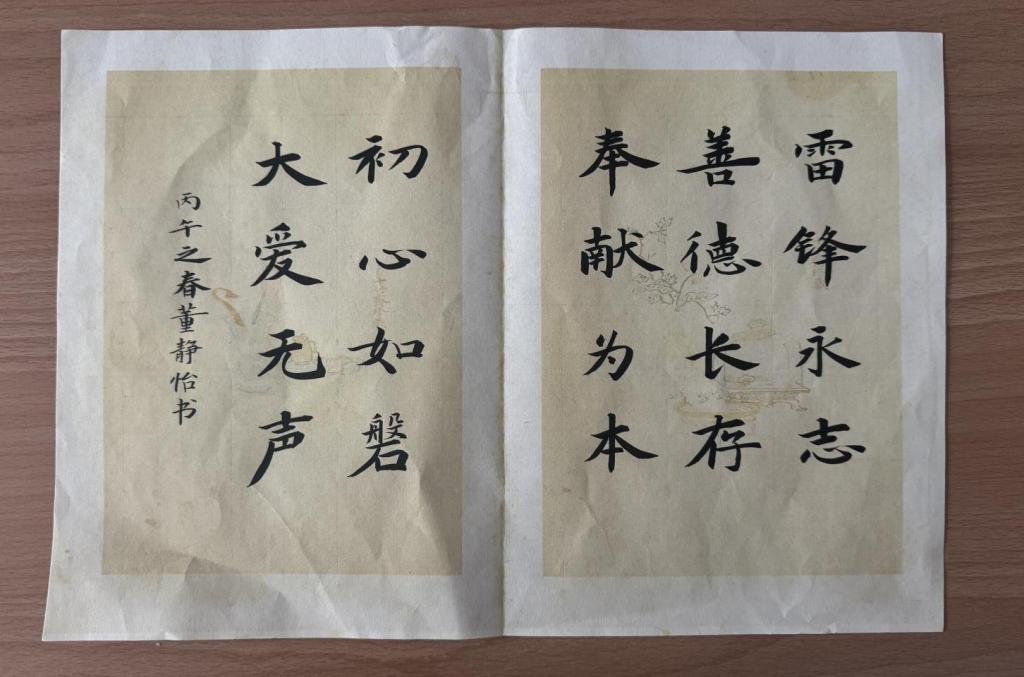 雷锋永志
善德长存
奉献为本
初心如磐
大爱无声
丙午之春董静怡书